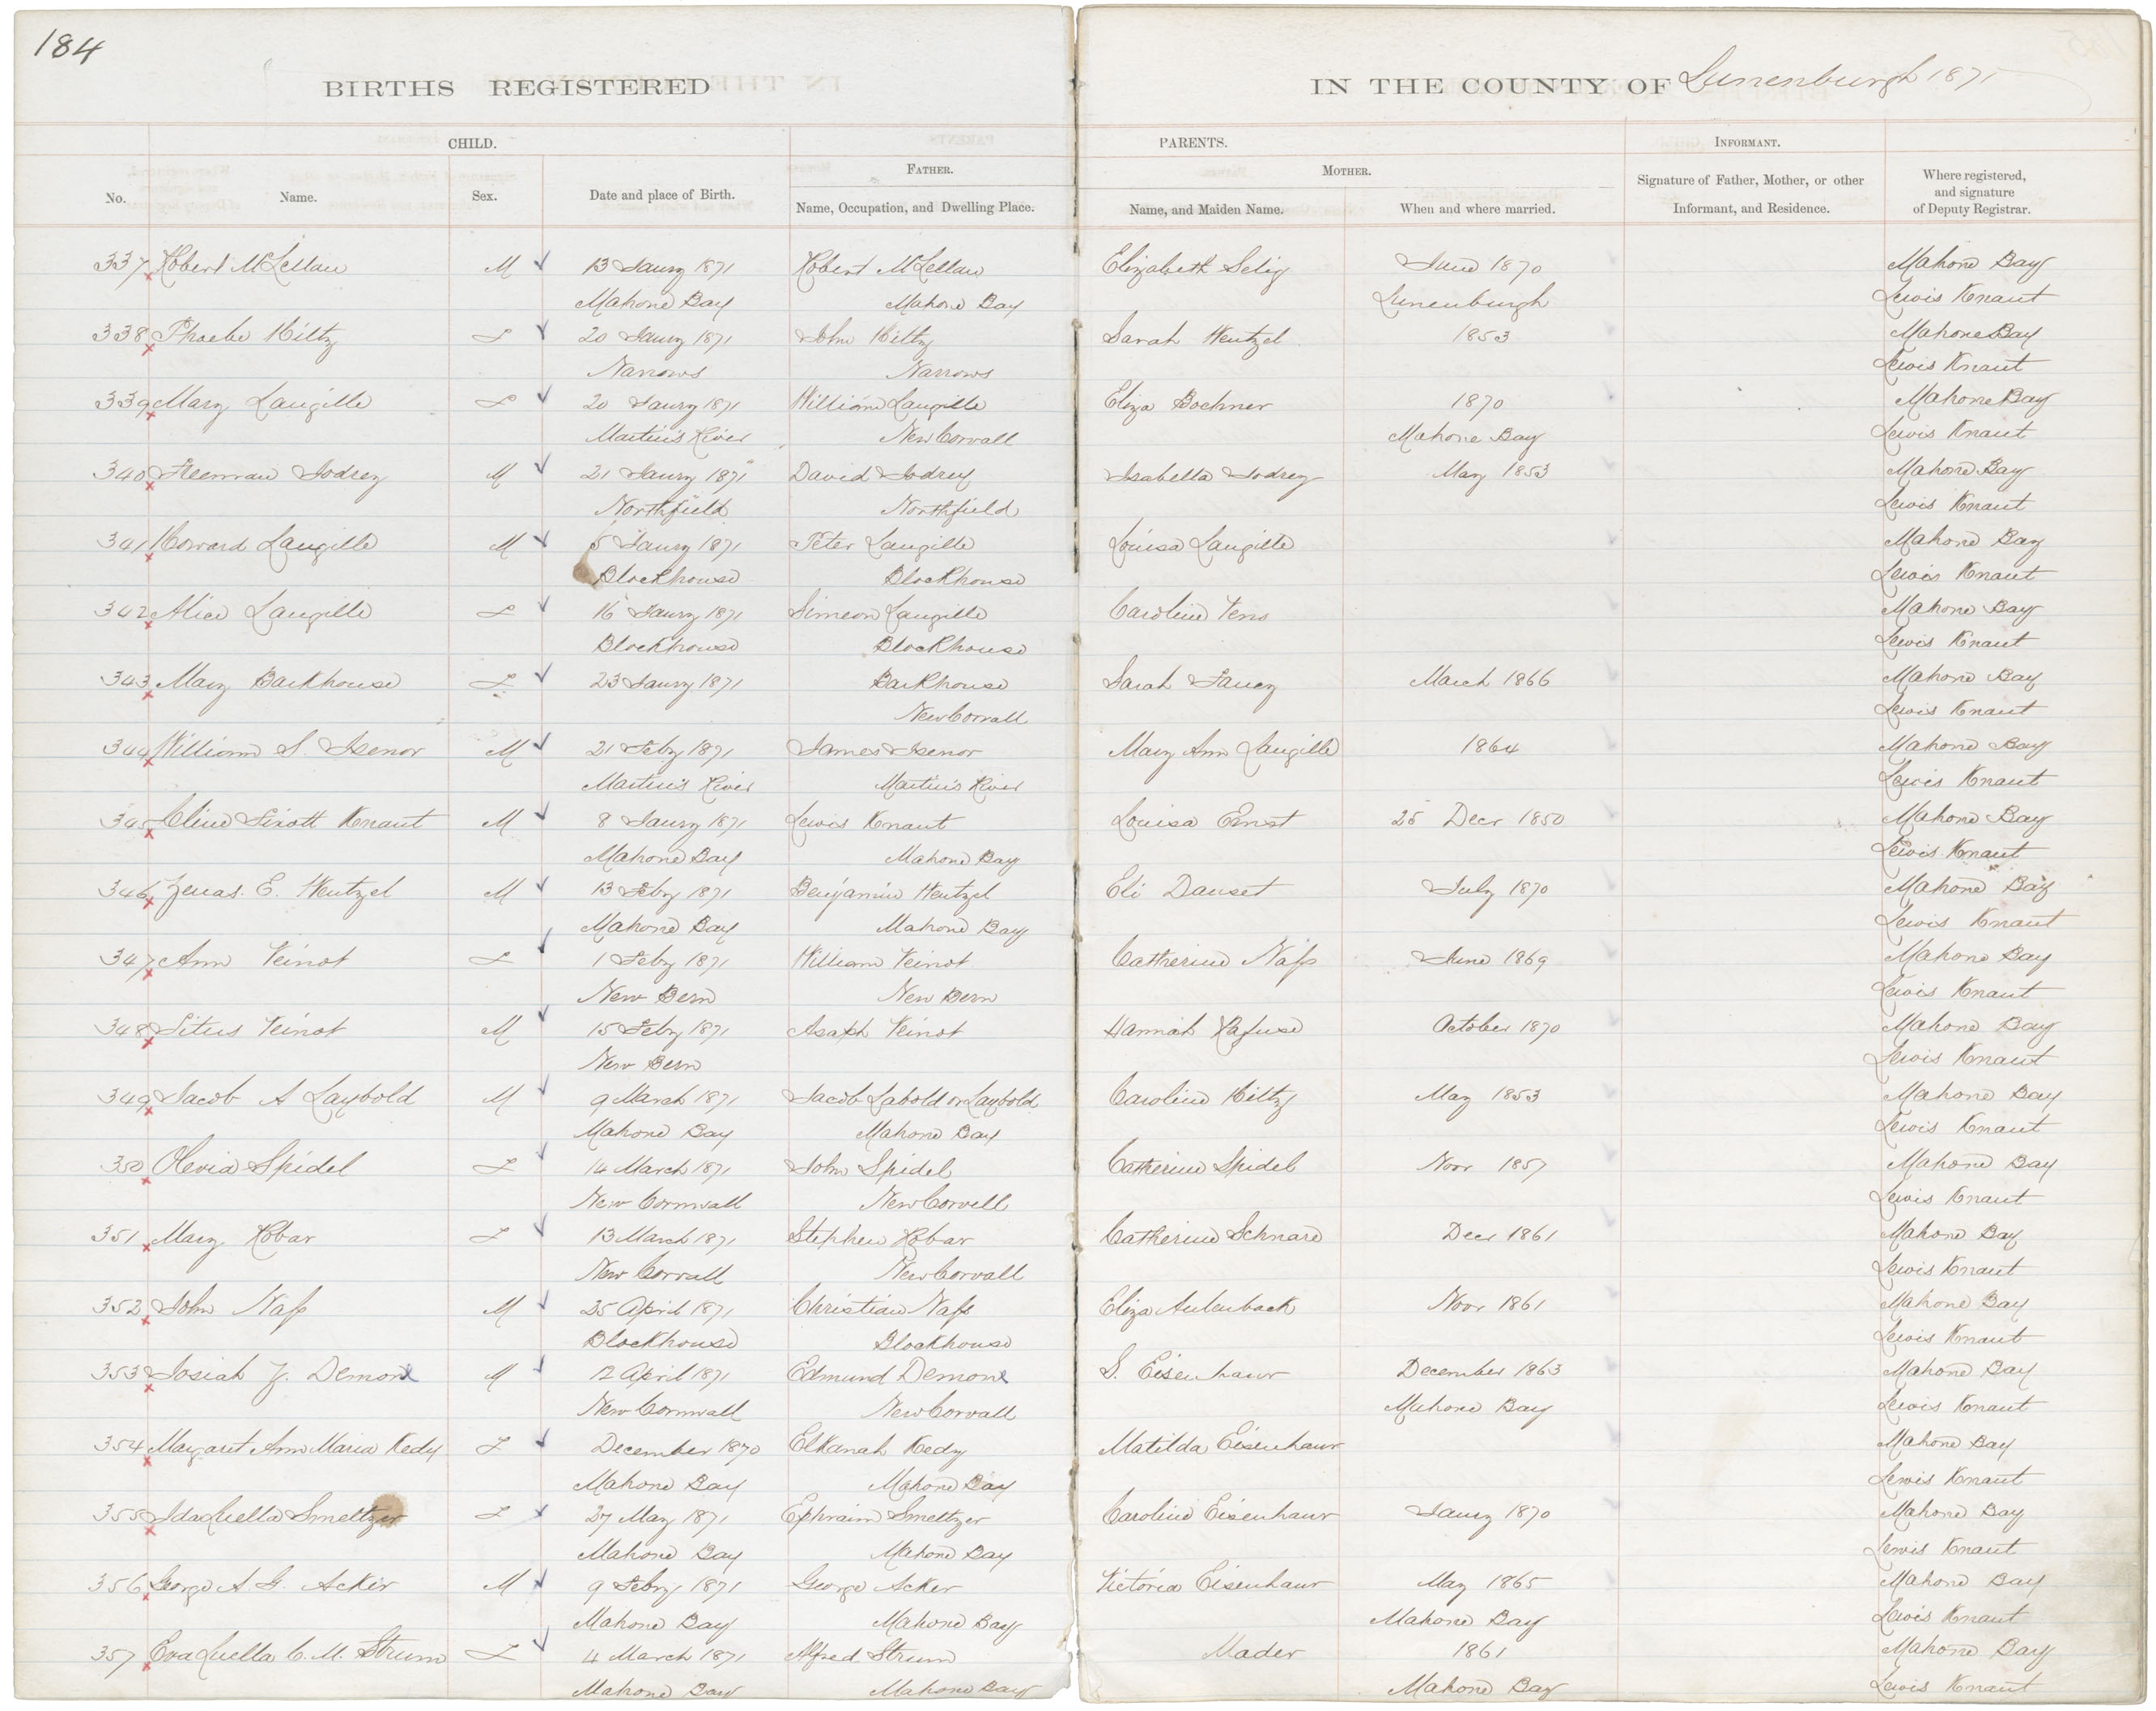 184
BIRTHS REGISTERED IN THE COUNTY OF Lunenburgh 1871
CHILD. PARENTS. INFORMANT.
FATHER. MOTHER.
No. Name. Sex. Date and place of Birth. Name, Occupation, and Dwelling Place. Name, and Maiden Name. When and where married. Signature of Father, Mother, or other Informant, and Residence. Where registered, and signature of Deputy Registrar.
337 Robert McLellan M 13 Jany 1871 Robert McLellan Elizabeth Selig June 1870 Mahone Bay
Mahone Bay Mahone Bay Lunenburgh Lewis Knaut
338 Phoebe Hiltz F 20 Jany 1871 John Hiltz Sarah Wentzel 1853 Mahone Bay
Narrows Narrows Lewis Knaut
339 Mary Langille F 20 Jany 1871 William Langille Eliza Bochner 1870 Mahone Bay
Martin's River New Corvall Mahone Bay Lewis Knaut
340 Freeman Jodrey M 21 Jany 1871 David Jodrey Isabella Jodrey May 1853 Mahone Bay
Northfield Northfield Lewis Knaut
341 Howard Langille M 5 Jany 1871 Peter Langille Louisa Langille Mahone Bay
Blockhouse Blockhouse Lewis Knaut
342 Alice Langille F 16 Jany 1871 Simeon Langille Caroline Mahone Bay
Blockhouse Blockhouse Lewis Knaut
343 Mary Barkhouse F 23 Jany 1871 Barkhouse Sarah Fancy March 1866 Mahone Bay
New Corvall Lewis Knaut
344 William S. Isenor M 21 Feby 1871 James Isenor Mary Ann Langille 1864 Mahone Bay
Martin's River Martin's River Lewis Knaut
345 Knaut M 8 Jany 1871 Lewis Knaut Louisa Ernst 25 Decr 1850 Mahone Bay
Mahone Bay Mahone Bay Lewis Knaut
346 Zenas. E. Wentzel M 13 Feby 1871 Benjamin Wentzel Eli Dauset July 1870 Mahone Bay
Mahone Bay Mahone Bay Lewis Knaut
347 Ann Veinot F 1 Feby 1871 William Veinot Catherine Nass June 1869 Mahone Bay
New Bern New Bern Lewis Knaut
348 Titus Veinot M 15 Feby 1871 Asaph Veinot Hannah Rafuse October 1870 Mahone Bay
New Bern Lewis Knaut
349 Jacob A Laybold M 9 March 1871 Jacob Labold or Laybold Caroline Hiltz May 1853 Mahone Bay
Mahone Bay Mahone Bay Lewis Knaut
350 Olevia Spidel F 14 March 1871 John Spidel Catherine Spidel Novr 1857 Mahone Bay
New Cornwall New Corvell Lewis Knaut
351 Mary Robar F 13 March 1871 Stephen Robar Catherine Schnare Decr 1861 Mahone Bay
New Corvall New Corvall Lewis Knaut
352 John Nass M 25 April 1871 Christian Nass Eliza Aulenback Novr 1861 Mahone Bay
Blockhouse Blockhouse Lewis Knaut
353 Josiah Z. Demone M 12 April 1871 Edmund Demone S. Eisenhaur December 1863 Mahone Bay
New Cornwall New Corvall Mahone Bay Lewis Knaut
354 Margaret Ann Maria Kedy F December 1870 Elkanah Kedy Matilda Eisenhaur Mahone Bay
Mahone Bay Mahone Bay Lewis Knaut
355 Ida Luella Smeltzer F 27 May 1871 Ephraim Smeltzer Caroline Eisenhaur Jany 1870 Mahone Bay
Mahone Bay Mahone Bay Lewis Knaut
356 George A. G. Acker M 9 Febry 1871 George Acker Victoria Eisenhaur May 1865 Mahone Bay
Mahone Bay Mahone Bay Mahone Bay Lewis Knaut
357 Eva Luella C. M. Strum F 4 March 1871 Alfred Strum Mader 1861 Mahone Bay
Mahone Bay Mahone Bay Mahone Bay Lewis Knaut